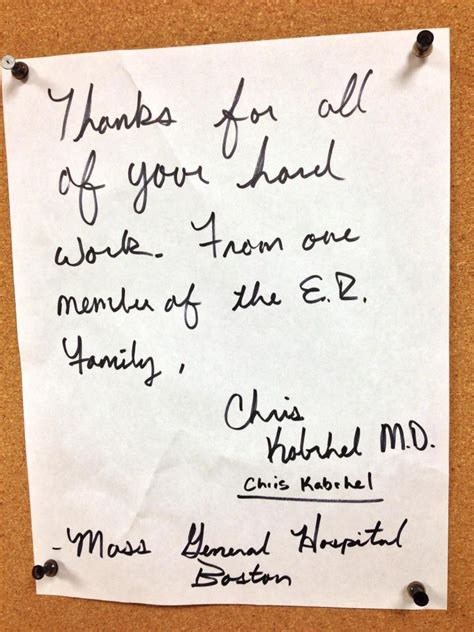 Thanks for all
of your hard
work. From one
member of the E.R.
Family,
Chris
Kabrhel M.D.
Chris Kabrhel
- Mass General Hospital
Boston